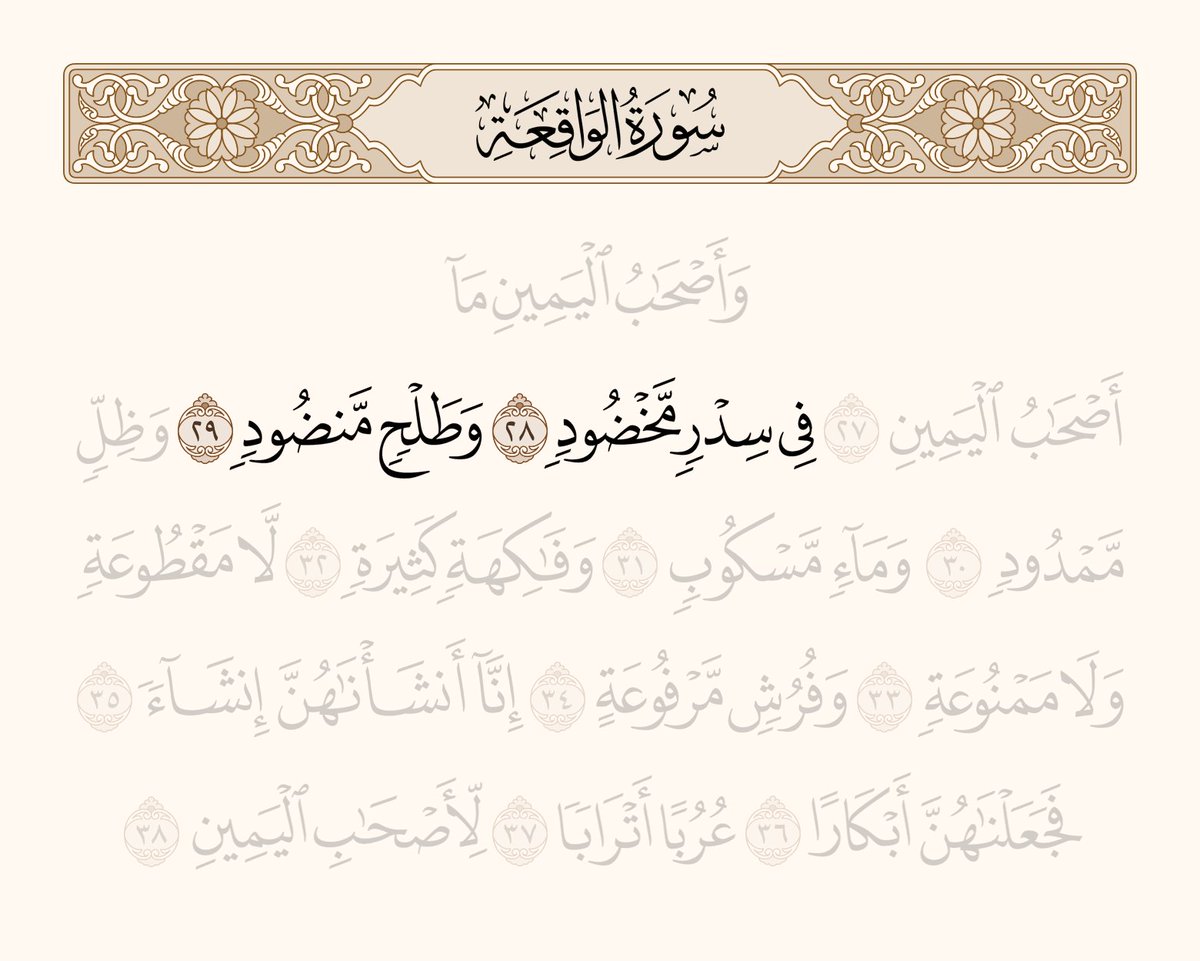 سُورَةُ الوَاقِعَةِ
وَأَصْحَٰبُ ٱلْيَمِينِ مَآ
أَصْحَٰبُ ٱلْيَمِينِ ٢٧ فِى سِدْرٍ مَّخْضُودٍ ٢٨ وَطَلْحٍ مَّنضُودٍ ٢٩ وَظِلٍّ
مَّمْدُودٍ ٣٠ وَمَآءٍ مَّسْكُوبٍ ٣١ وَفَٰكِهَةٍ كَثِيرَةٍ ٣٢ لَّا مَقْطُوعَةٍ
وَلَا مَمْنُوعَةٍ ٣٣ وَفُرُشٍ مَّرْفُوعَةٍ ٣٤ إِنَّآ أَنشَأْنَٰهُنَّ إِنشَآءً ٣٥
فَجَعَلْنَٰهُنَّ أَبْكَارًا ٣٦ عُرُبًا أَتْرَابًا ٣٧ لِّأَصْحَٰبِ ٱلْيَمِينِ ٣٨